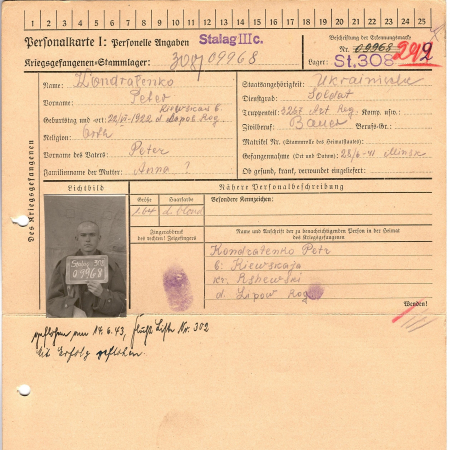 1 2 3 4 5 6 7 8 9 10 11 12 13 14 15 16 17 18 19 20 21 22 23 24 25
Personalkarte I: Personelle Angaben Stalag IIIc.
Kriegsgefangenen-Stammlager: 09968
Beschriftung der Erkennungsmarke
Nr. 09968
Lager: St. 308
Des Kriegsgefangenen
Name: Kondratenko
Vorname: Peter
Kiewskau b.
Geburtstag und -ort: 22/VI-1922 d. Lipov Rog.
Religion: Orth
Vorname des Vaters: Peter
Familienname der Mutter: Anna ?
Staatsangehörigkeit: Ukrainische
Dienstgrad: Soldat
Truppenteil: 5267 Art Reg. Komp. usw.:
Zivilberuf: Bauer Berufs-Gr.:
Matrikel Nr. (Stammrolle des Heimatstaates):
Gefangennahme (Ort und Datum): 28/6-41 Minsk
Ob gesund, krank, verwundet eingeliefert:
Lichtbild
Nähere Personalbeschreibung
Größe Haarfarbe Besondere Kennzeichen:
1.64 d. blond
Fingerabdruck
des rechten! Zeigefingers
Name und Anschrift der zu benachrichtigenden Person in der Heimat
des Kriegsgefangenen
Stalag 308
09968
Kondratenko Petr
b. Kiewskaja
kr. Rshewski
d. Lipow Rog
Wenden!
geflohen am 14.6.43, Flucht Liste Nr. 302
mit Erfolg geflohen.